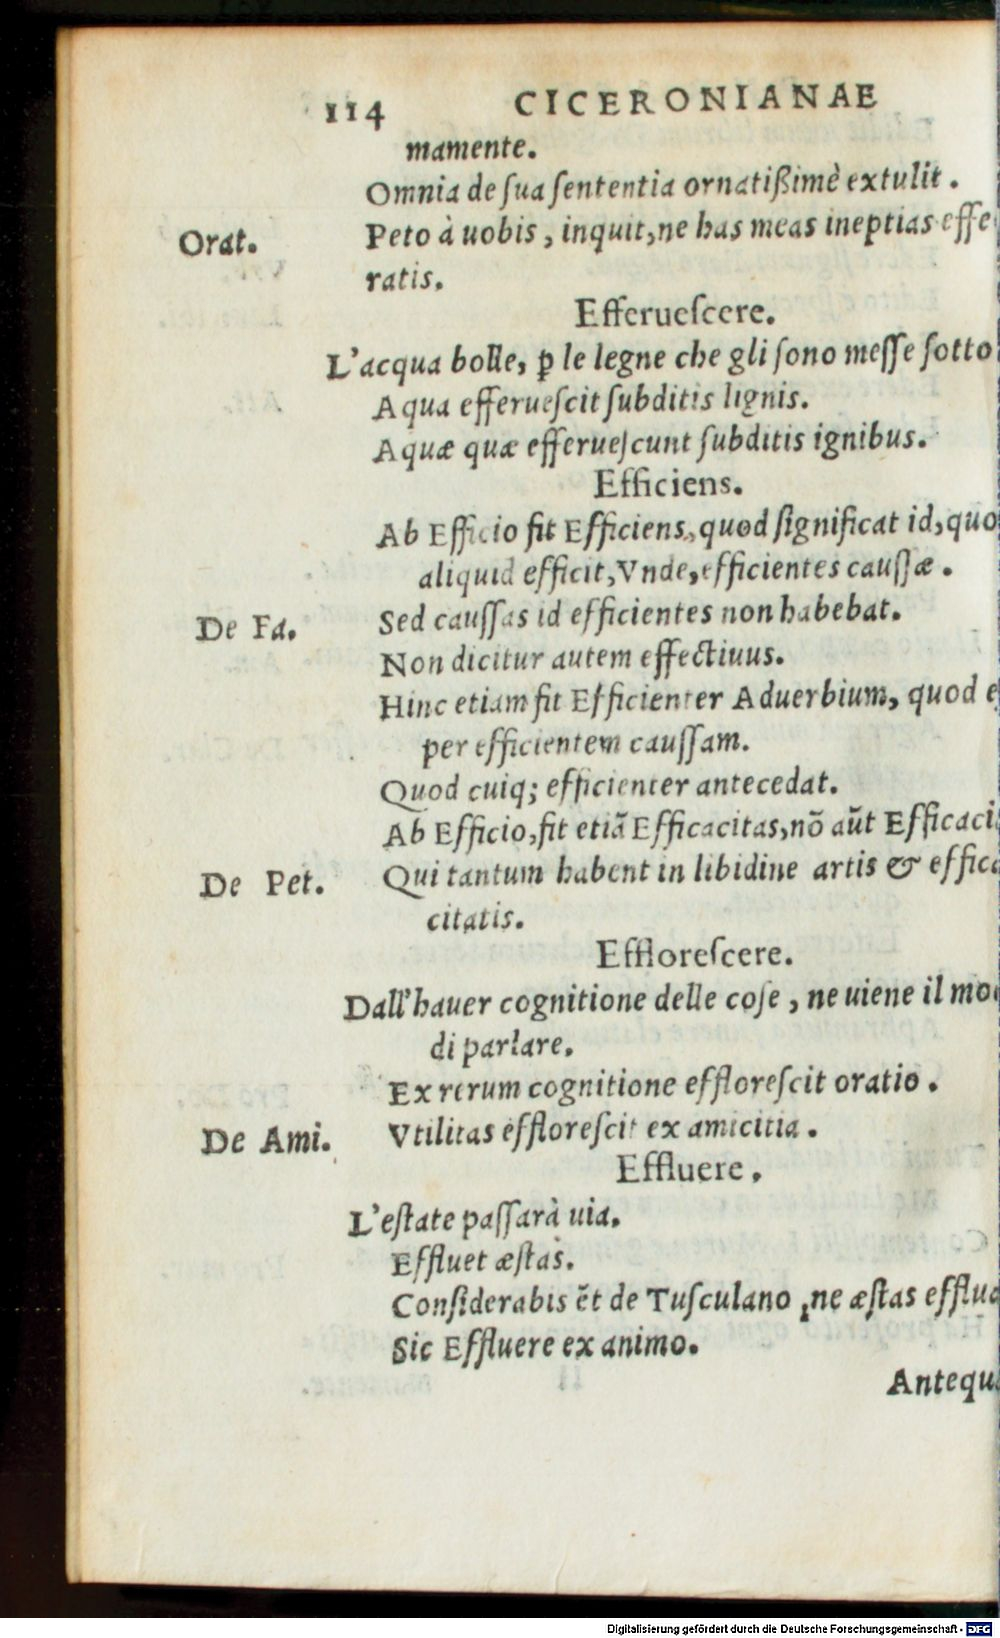 114 CICERONIANAE
mamente.
Omnia de ſua ſententia ornatißimè extulit.
Orat. Peto à uobis, inquit, ne has meas ineptias effe
ratis.
Efferueſcere.
L'acqua bolle, ꝑ le legne che gli ſono meſſe ſotto
Aqua efferueſcit ſubditis lignis.
Aquæ quæ efferueſcunt ſubditis ignibus.
Efficiens.
Ab Efficio fit Efficiens, quod ſignificat id, quo
aliquid efficit, Vnde, efficientes cauſſæ.
De Fa. Sed cauſſas id efficientes non habebat.
Non dicitur autem effectiuus.
Hinc etiam fit Efficienter Aduerbium, quod e
per efficientem cauſſam.
Quod cuiq; efficienter antecedat.
Ab Efficio, fit etiã Efficacitas, nõ aũt Efficaci
De Pet. Qui tantum habent in libidine artis & effic
citatis.
Effloreſcere.
Dall'hauer cognitione delle coſe, ne uiene il mo
di parlare.
Ex rerum cognitione effloreſcit oratio.
De Ami. Vtilitas effloreſcit ex amicitia.
Effluere.
L'eſtate paſſarà uia.
Effluet æſtas.
Conſiderabis ẽt de Tuſculano, ne æſtas efflua
Sic Effluere ex animo.
Antequ
Digitalisierung gefördert durch die Deutsche Forschungsgemeinschaft - DFG